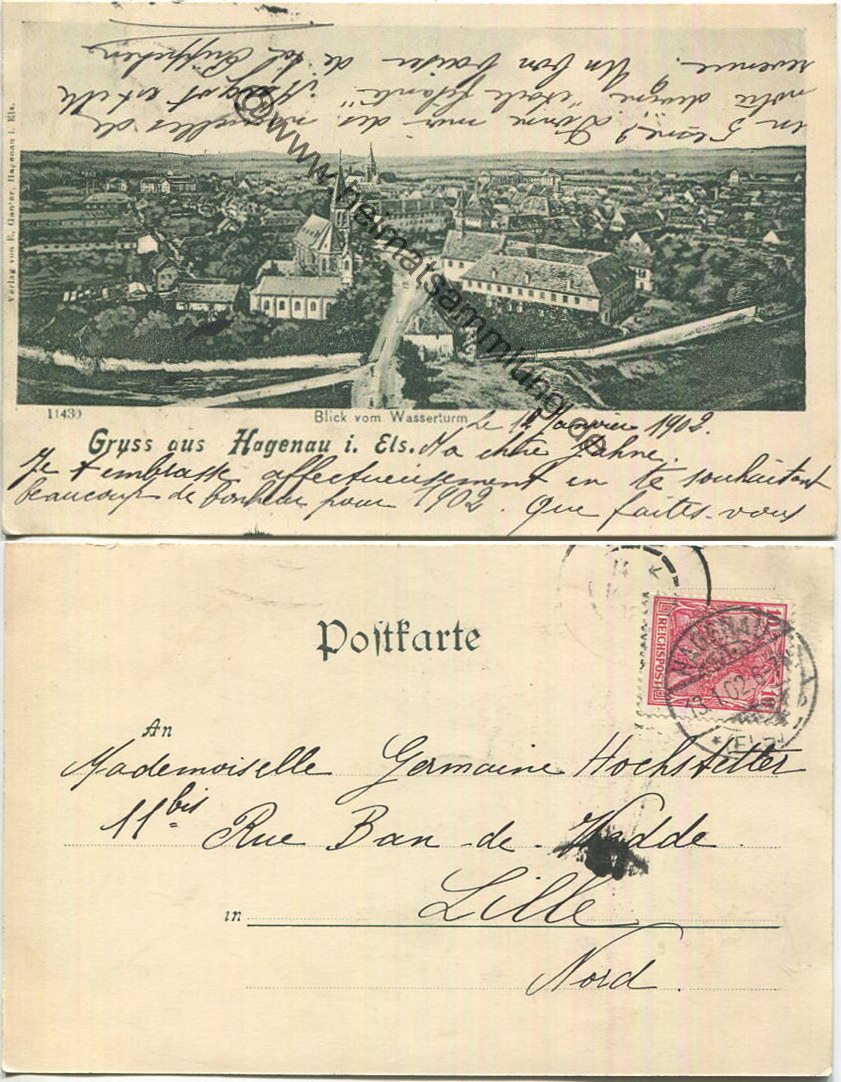 Verlag von R. Ganter, Hagenau i. Els.
11430
Blick vom Wasserturm
Gruss aus Hagenau i. Els.
Le 12 Janvier 1902.
Ma chère
Je t'embrasse affectueusement en te souhaitant
beaucoup de bonheur pour 1902. Que faites-vous
en 5ème? Donne moi des nouvelles de
notre
revenue. Un bon baiser de ta
@www.heimatsammlung.de
Postkarte
10
REICHSPOST
10
HAGENAU
13.1.02.
* (ELS.)
An
Mademoiselle Germaine Hochstetter
11 bis Rue Ban-de-Wedde.
in Lille
Nord.